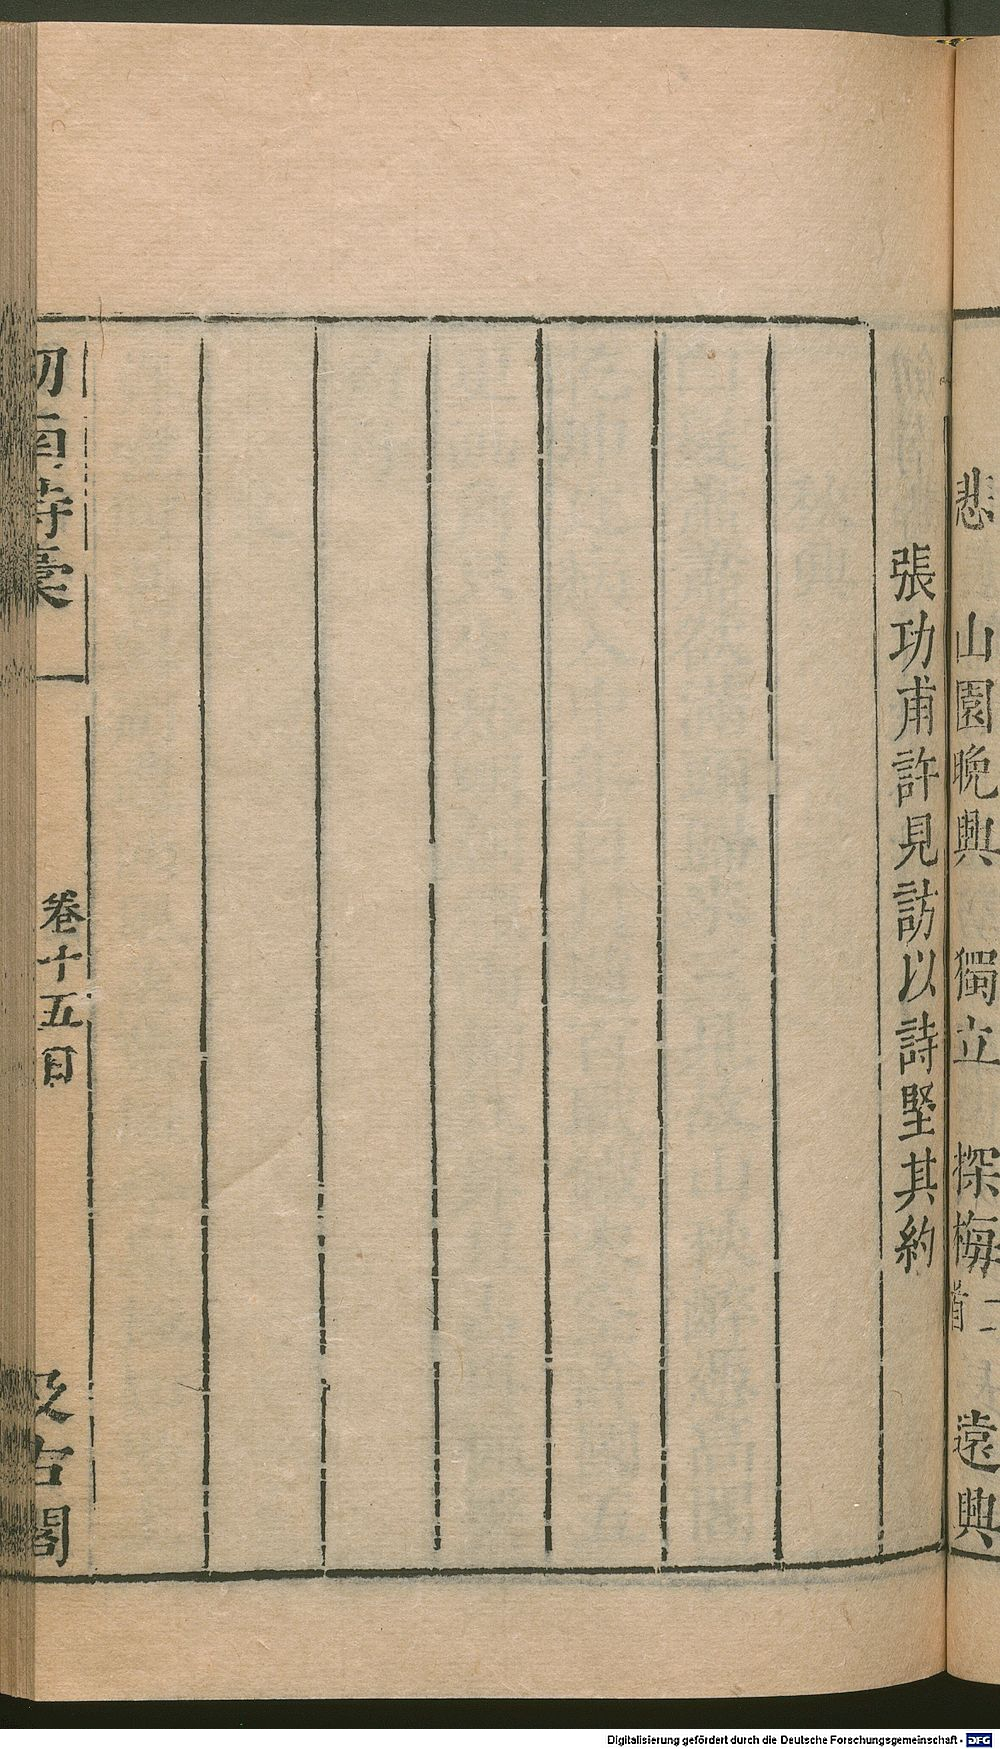 悲　山園晚興　獨立　探梅二首　遠興
張功甫許見訪以詩堅其約
劒南詩稾　卷十五目　汲古閣
Digitalisierung gefördert durch die Deutsche Forschungsgemeinschaft - DFG